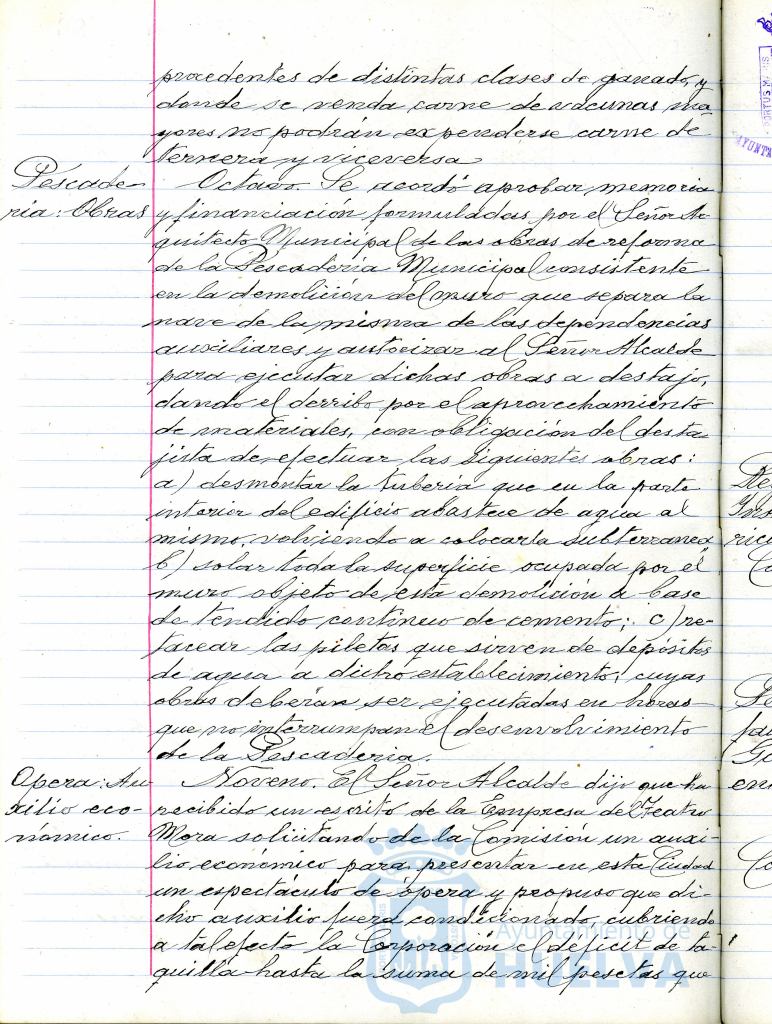 procedentes de distintas clases de ganado, y
donde se venda carne de vacunas ma
yores no podrán expenderse carne de
ternera y viceversa
Pescade-
ría: Obras
Octavo. Se acordó aprobar memoria
y financiación formuladas por el Señor Ar
quitecto Municipal de las obras de reforma
de la Pescadería Municipal consistente
en la demolición del muro que separa la
nave de la misma de las dependencias
auxiliares y autorizar al Señor Alcalde
para ejecutar dichas obras a destajo,
dando el derribo por el aprovechamiento
de materiales, con obligación del desta-
jista de efectuar las siguientes obras:
a) desmontar la tubería que en la parte
interior del edificio abastece de agua al
mismo, volviendo a colocarla subterranea
b) solar toda la superficie ocupada por el
muro objeto de esta demolición a base
de tendido continuo de cemento; c) re-
tacear las piletas que sirven de depósitos
de agua a dicho establecimiento, cuyas
obras deberán ser ejecutadas en horas
que no interrumpan el desenvolvimiento
de la Pescadería.
Opera: Au
xilio eco-
nómico.
Noveno. El Señor Alcalde dijo que ha
recibido un escrito de la Empresa del Teatro
Mora solicitando de la Comisión un auxi-
lio económico para presentar en esta Ciudad
un espectáculo de ópera y propuso que di-
cho auxilio fuera condicionado, cubriendo
a tal efecto la Corporación el déficit de ta-
quilla hasta la suma de mil pesetas que
Ayuntamiento de
HUELVA